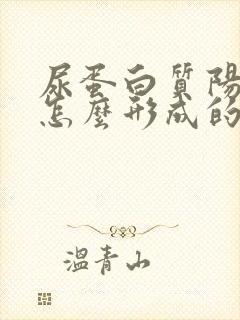 尿蛋白質陽
怎麼形成的
溫青山